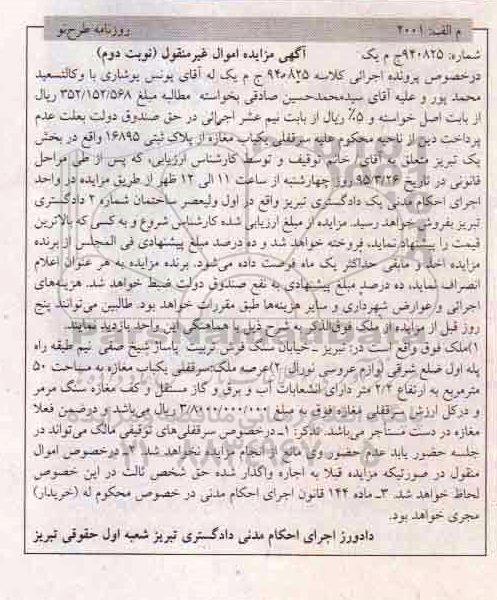 م الف: ۲۰۰۱ روزنامه طرح‌نو
شماره: ۹۴۰۸۲۵ج م یک آگهی مزایده اموال غیرمنقول (نوبت دوم)
درخصوص پرونده اجرائی کلاسه ۹۴۰۸۲۵ ج م یک له آقای یونس یوشاری با وکالتسعید
محمد پور و علیه آقای سیدمحمدحسین صادقی بخواسته مطالبه مبلغ ۳۵۲/۱۵۲/۵۶۸ ریال
از بابت اصل خواسته و ۵٪ ریال از بابت نیم عشر اجرائی در حق صندوق دولت بعلت عدم
پرداخت دین از ناحیه محکوم علیه سرقفلی یکباب مغازه از پلاک ثبتی ۱۶۸۹۵ واقع در بخش
یک تبریز متعلق به آقای/ خانم توقیف و توسط کارشناس ارزیابی، که پس از طی مراحل
قانونی در تاریخ ۹۵/۳/۲۶ روز چهارشنبه از ساعت ۱۱ الی ۱۲ ظهر از طریق مزایده در واحد
اجرای احکام مدنی یک دادگستری تبریز واقع در اول ولیعصر ساختمان شماره ۲ دادگستری
تبریز بفروش خواهد رسید. مزایده از مبلغ ارزیابی شده کارشناس شروع و به کسی که بالاترین
قیمت را پیشنهاد نماید، فروخته خواهد شد و ده درصد مبلغ پیشنهادی فی المجلس از برنده
مزایده اخذ و مابقی حداکثر یک ماه فرصت داده می‌شود. برنده مزایده به هر عنوان اعلام
انصراف نماید، ده درصد مبلغ پیشنهادی به نفع صندوق دولت ضبط خواهد شد. هزینه‌های
اجرائی و عوارض شهرداری و سایر هزینه‌ها طبق مقررات خواهد بود. طالبین می‌توانند پنج
روز قبل از مزایده از ملک فوق‌الذکر به شرح ذیل با هماهنگی این واحد بازدید نمایند.
۱)ملک فوق واقع است در: تبریز ـ خیابان سنگ فرش تربیت پاساژ شیخ صفی نیم طبقه راه
پله اول ضلع شرقی لوازم عروسی نورال ۲)عرصه ملک:سرقفلی یکباب مغازه به مساحت ۵۰
مترمربع به ارتفاع ۲/۲ متر دارای انشعابات آب و برق و گاز مستقل و کف مغازه سنگ مرمر
و درکل ارزش سرقفلی مغازه فوق به مبلغ ریال می‌باشد و درضمن فعلا
مغازه در دست مستأجر می‌باشد. تذکر: ۱ـ درخصوص سرقفلی‌های توقیفی مالک می‌تواند در
جلسه حضور یابد عدم حضور وی مانع از انجام مزایده نخواهد شد. ۲ـ درخصوص اموال
منقول در صورتیکه مزایده قبلا به اجاره واگذار شده حق شخص ثالث در این خصوص
لحاظ خواهد شد. ۳ـ ماده ۱۴۴ قانون اجرای احکام مدنی در خصوص محکوم له (خریدار)
مجری خواهد بود.
دادورز اجرای احکام مدنی دادگستری تبریز شعبه اول حقوقی تبریز